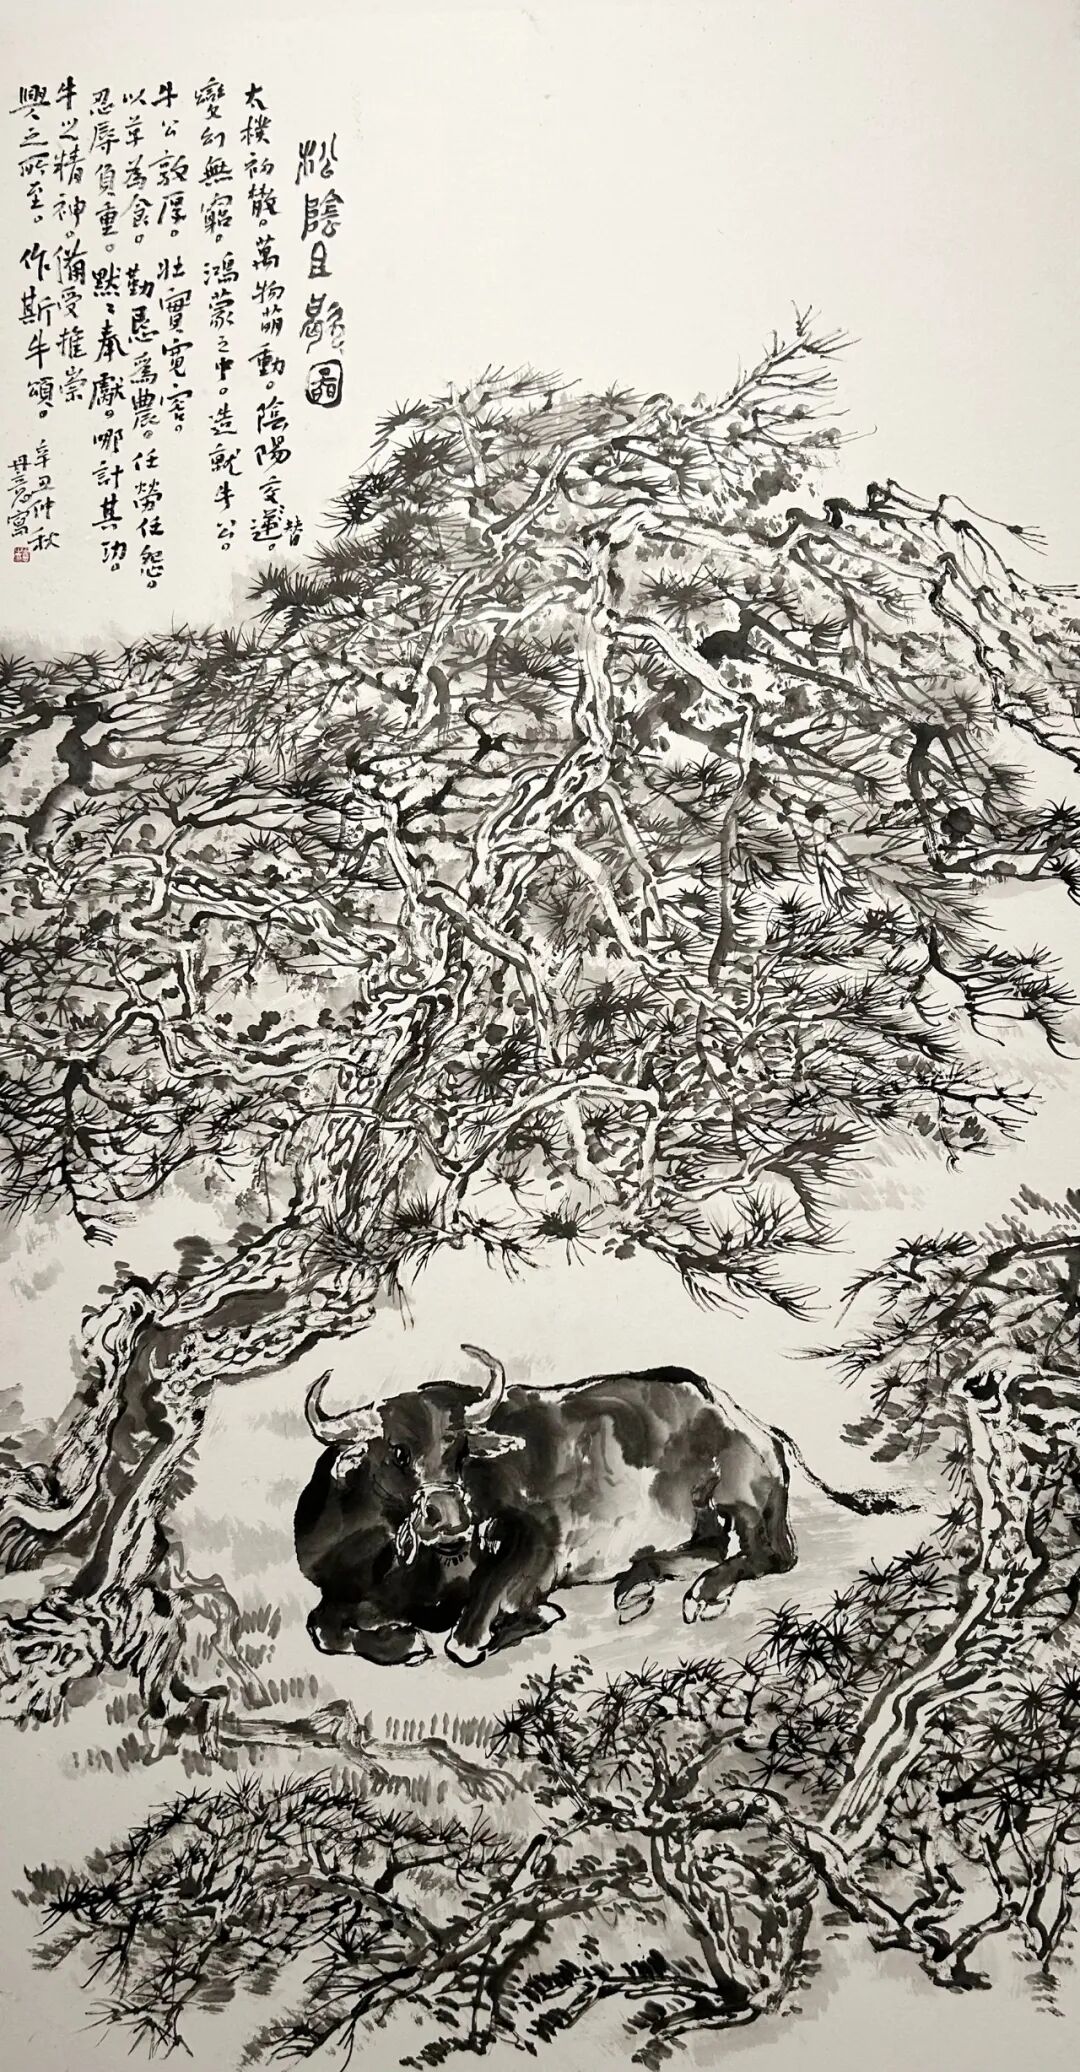 松陰且歇圖
太樸初散。萬物萌動。陰陽交運。替
變幻無窮。鴻蒙之中。造就牛公。
牛公敦厚。壯實寬容。
以草為食。勤恳爲農。任勞任怨。
忍辱負重。默々奉獻。哪計其功。
牛之精神。備受推崇
興之所至。作斯牛頌。辛丑仲秋
寫